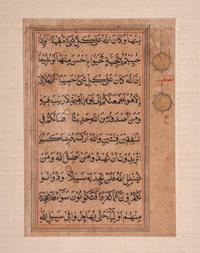 منها وكان الله على كل شيء مقيتا وإذا
حييتم بتحية فحيوا بأحسن منها أو ردوها
إن الله كان على كل شيء حسيبا الله لا إله
إلا هو ليجمعنكم إلى يوم القيمة لا ريب فيه
ومن أصدق من الله حديثا فما لكم في
المنفقين فئتين والله أركسهم بما كسبوا
أتريدون أن تهدوا من أضل الله ومن
يضلل الله فلن تجد له سبيلا ودوا لو
تكفرون كما كفروا فتكونون سواء فلا تتخذوا
منهم أولياء حتى يهاجروا في سبيل الله